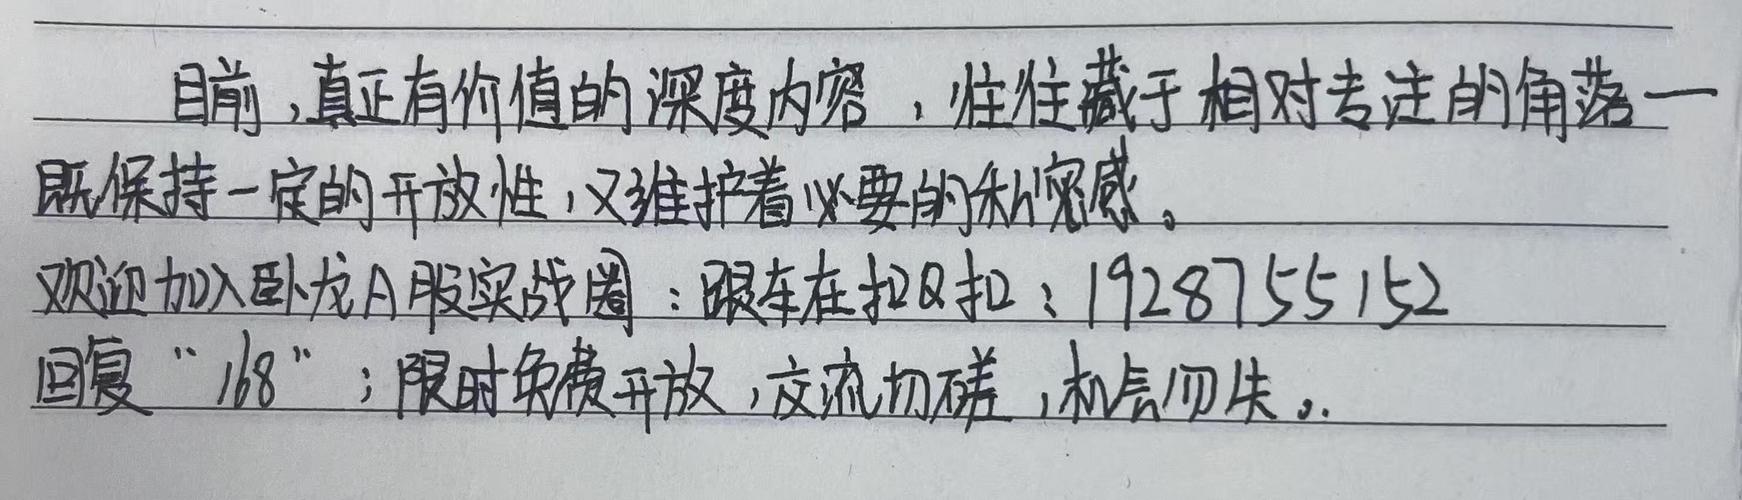 目前，真正有价值的深度内容，往往藏于相对专注的角落一
既保持一定的开放性，又维护着必要的私密感。
欢迎加入卧龙A股实战圈：跟车在扣Q扣：1928755152
回复“168”；限时免费开放，交流切磋，机会勿失。